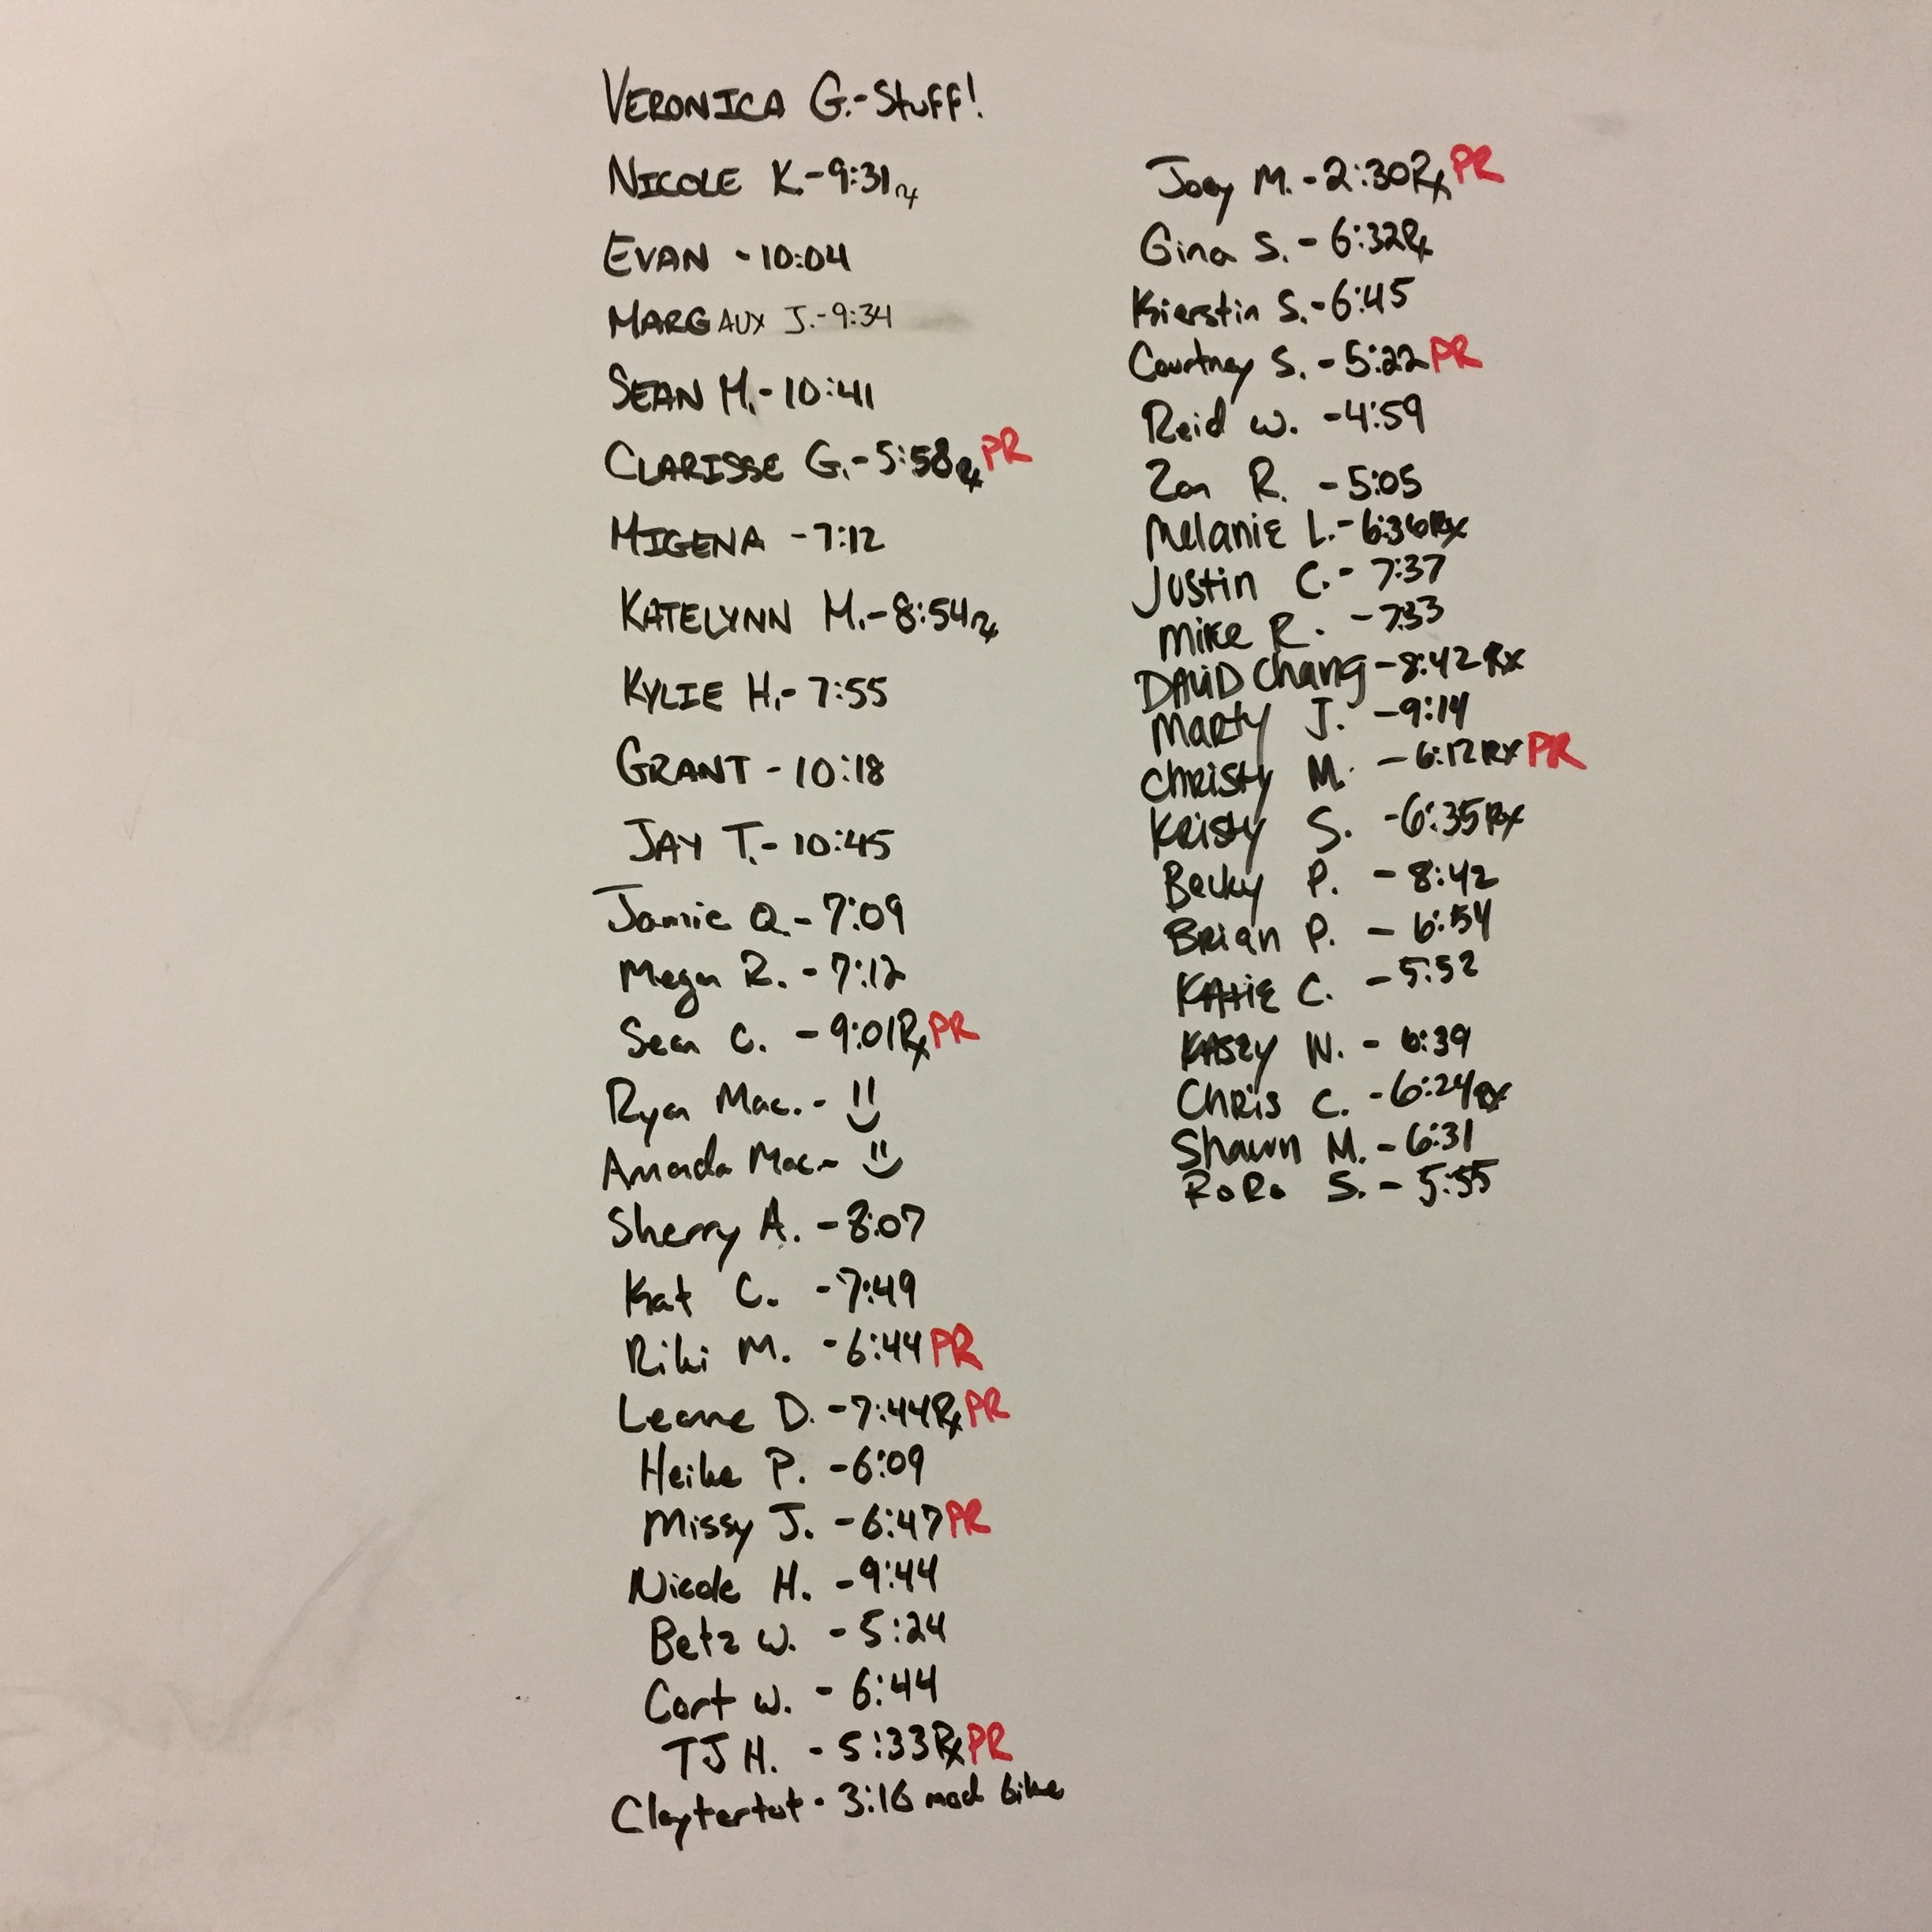 VERONICA G.-Stuff!
NICOLE K.-9:31Rx
EVAN - 10:04
MARGAUX J.-9:34
SEAN M.-10:41
CLARISSE G.-5:58Rx PR
MIGENA -7:12
KATELYNN M.-8:54Rx
KYLIE H.- 7:55
GRANT - 10:18
JAY T.- 10:45
Jamie Q.-7:09
Megan R. - 7:12
Sean C. - 9:01Rx PR
Ryan Mac. -
Amanda Mac.-
Sherry A. -8:07
Kat C. -7:49
Riki M. -6:44 PR
Leanne D. -7:44Rx PR
Heike P. -6:09
Missy J. -6:47 PR
Nicole H. -9:44
Betz W. - 5:24
Cort W. - 6:44
TJ H. - 5:33Rx PR
Claytertot - 3:16 mod bike
Joey M. -2:30Rx PR
Gina S. - 6:32Rx
Kierstin S.-6:45
Courtney S. - 5:22 PR
Reid W. -4:59
R. -5:05
Melanie L.- 6:36Rx
Justin C. - 7:37
Mike R. -7:33
DAViD Chang -8:42 Rx
Marty J. -9:14
Christy M. -6:12Rx PR
Kristy S. -6:35Rx
Becky P. - 8:42
Brian P. - 6:54
KAtiE C. -5:52
KASEy N. - 6:39
Chris C. -6:24Rx
Shawn M.-6:31
RoRo S. - 5:55